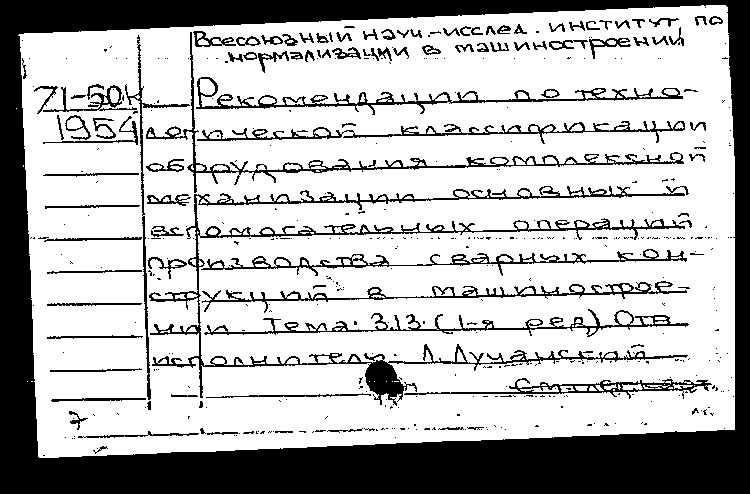 Всесоюзный науч.-исслед. институт по
нормализации в машиностроении
71-50к Рекомендации по техно-
1954 логической классификации
оборудования комплексной
механизации основных и
вспомогательных операций
производства сварных кон-
струкций в машинострое-
нии. Тема: 313. (1-я ред). Отв.
исполнитель: Л. Лучанский
См.след.карт.
7